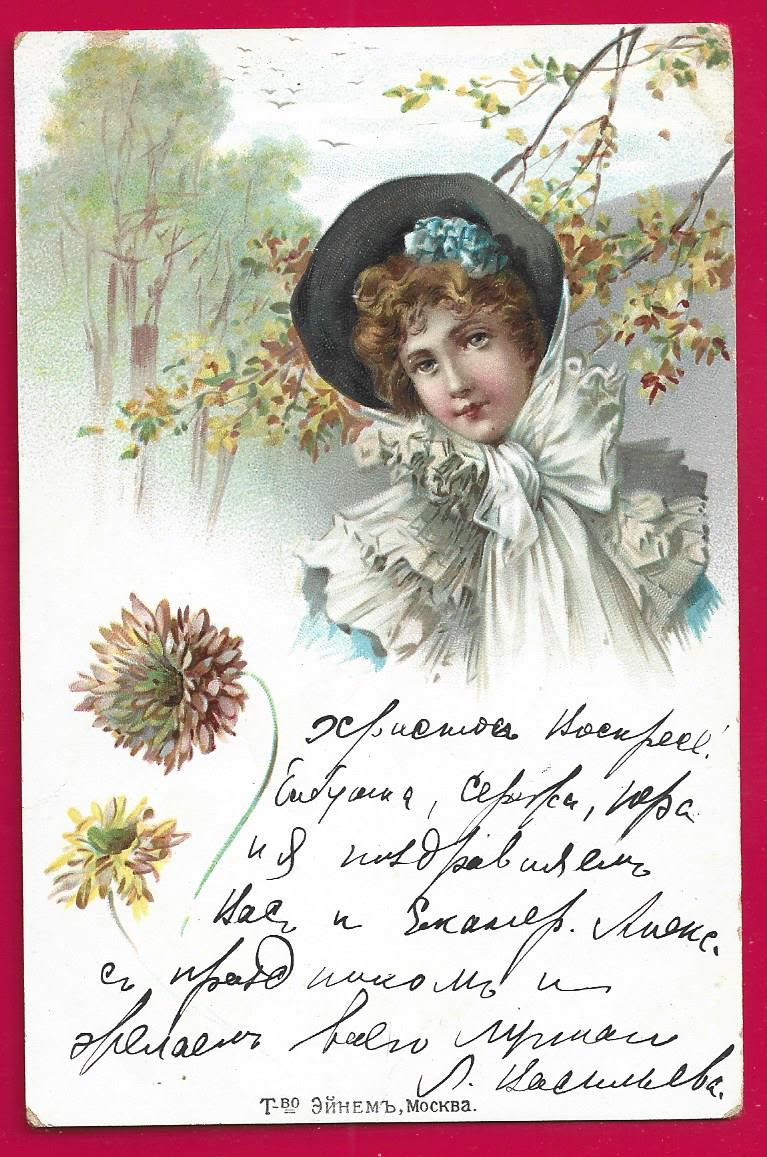 Христосъ Воскресе!
Бабушка, Сережа, Юра
и я поздравляемъ
Васъ и Екатер. Алекс.
съ праздникомъ и
желаемъ всего лучшаго
Л. Васильева.
Т-во ЭЙНЕМЪ, МОСКВА.